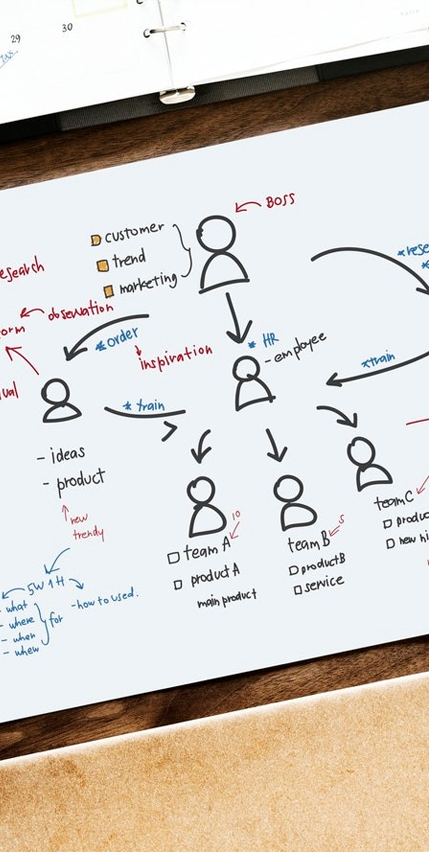 29
30
BOSS
customer
trend
marketing
esearch
obsevation
orm
*order
inspiration
* HR
- employee
*rese
*train
ual
* train
- ideas
- product
new
trendy
5W1H
- what
- where
- when
- whew
for
-how to used.
10
team A
product A
main product
5
team B
product B
service
team C
produc
new hi